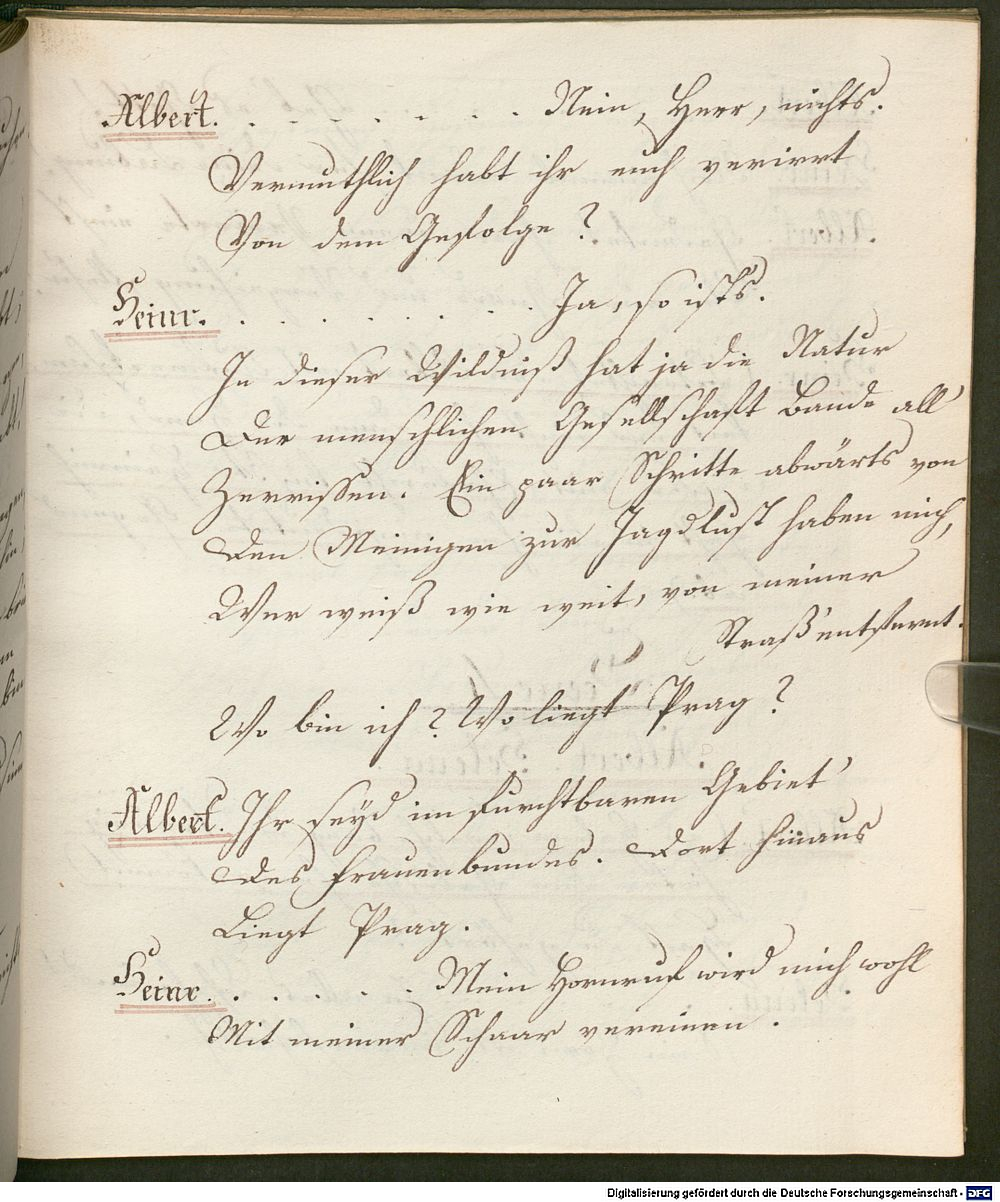 Albert. . . . . . . . . Nein, Herr, nichts.
Vermuthlich habt ihr euch verirrt
Von dem Gefolge?
Heinr. . . . . . . . . . Ja, so ists.
In dieser Wildniß hat ja die Natur
Der menschlichen Gesellschaft Bande all
Zerrissen. Ein paar Schritte abwärts von
Den Meinigen zur Jagdlust haben mich,
Wer weiß wie weit, von meiner
Straß' entfernt.
Wo bin ich? Wo liegt Prag?
Albert. Ihr seyd im furchtbaren Gebiet
Des Frauenbundes. Dort hinaus
Liegt Prag.
Heinr. . . . . . . Mein Hornruf wird mich wohl
Mit meiner Schaar vereinen.
Digitalisierung gefördert durch die Deutsche Forschungsgemeinschaft - DFG